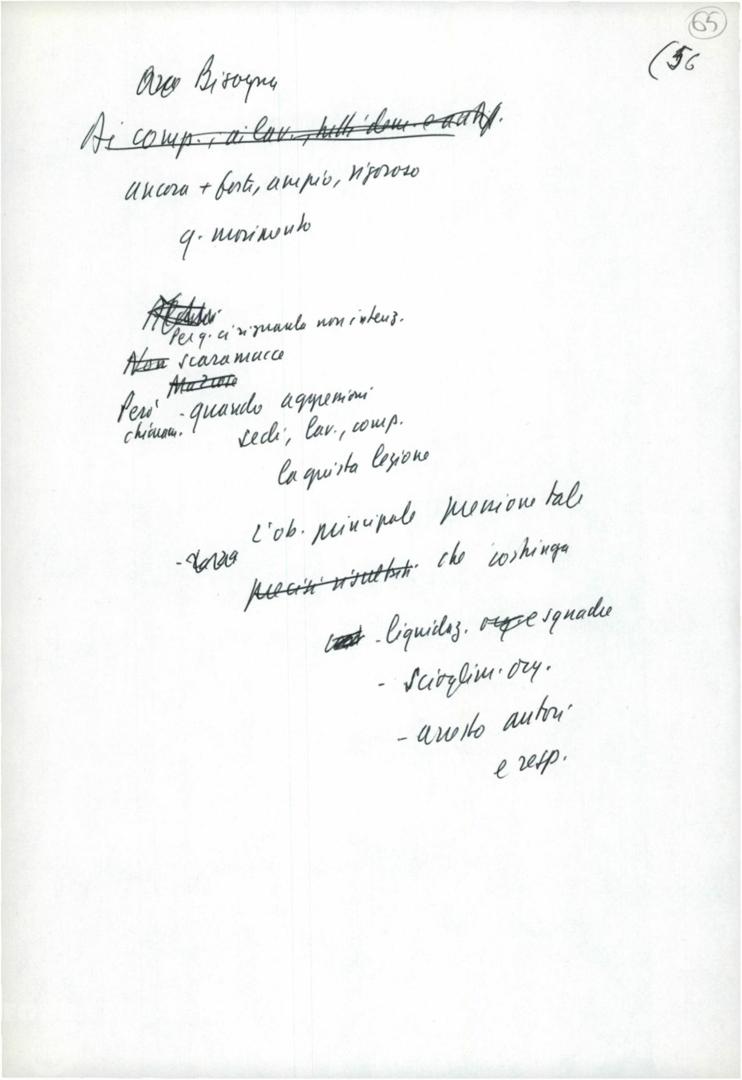 65
(56
Ora Bisogna
Ai comp., ai lav., tutti dem. e antif.
ancora + forte, ampio, rigoroso
q. movimento
Per q. ci riguarda non intenz.
Non scaramucce
Però - quando aggressioni
chiariam. sedi, lav., comp.
la giusta lezione
L'ob. principale pressione tale
precisi risultati che costringa
- liquidaz. org e squadre
- scioglim. org.
- arresto autori
e resp.